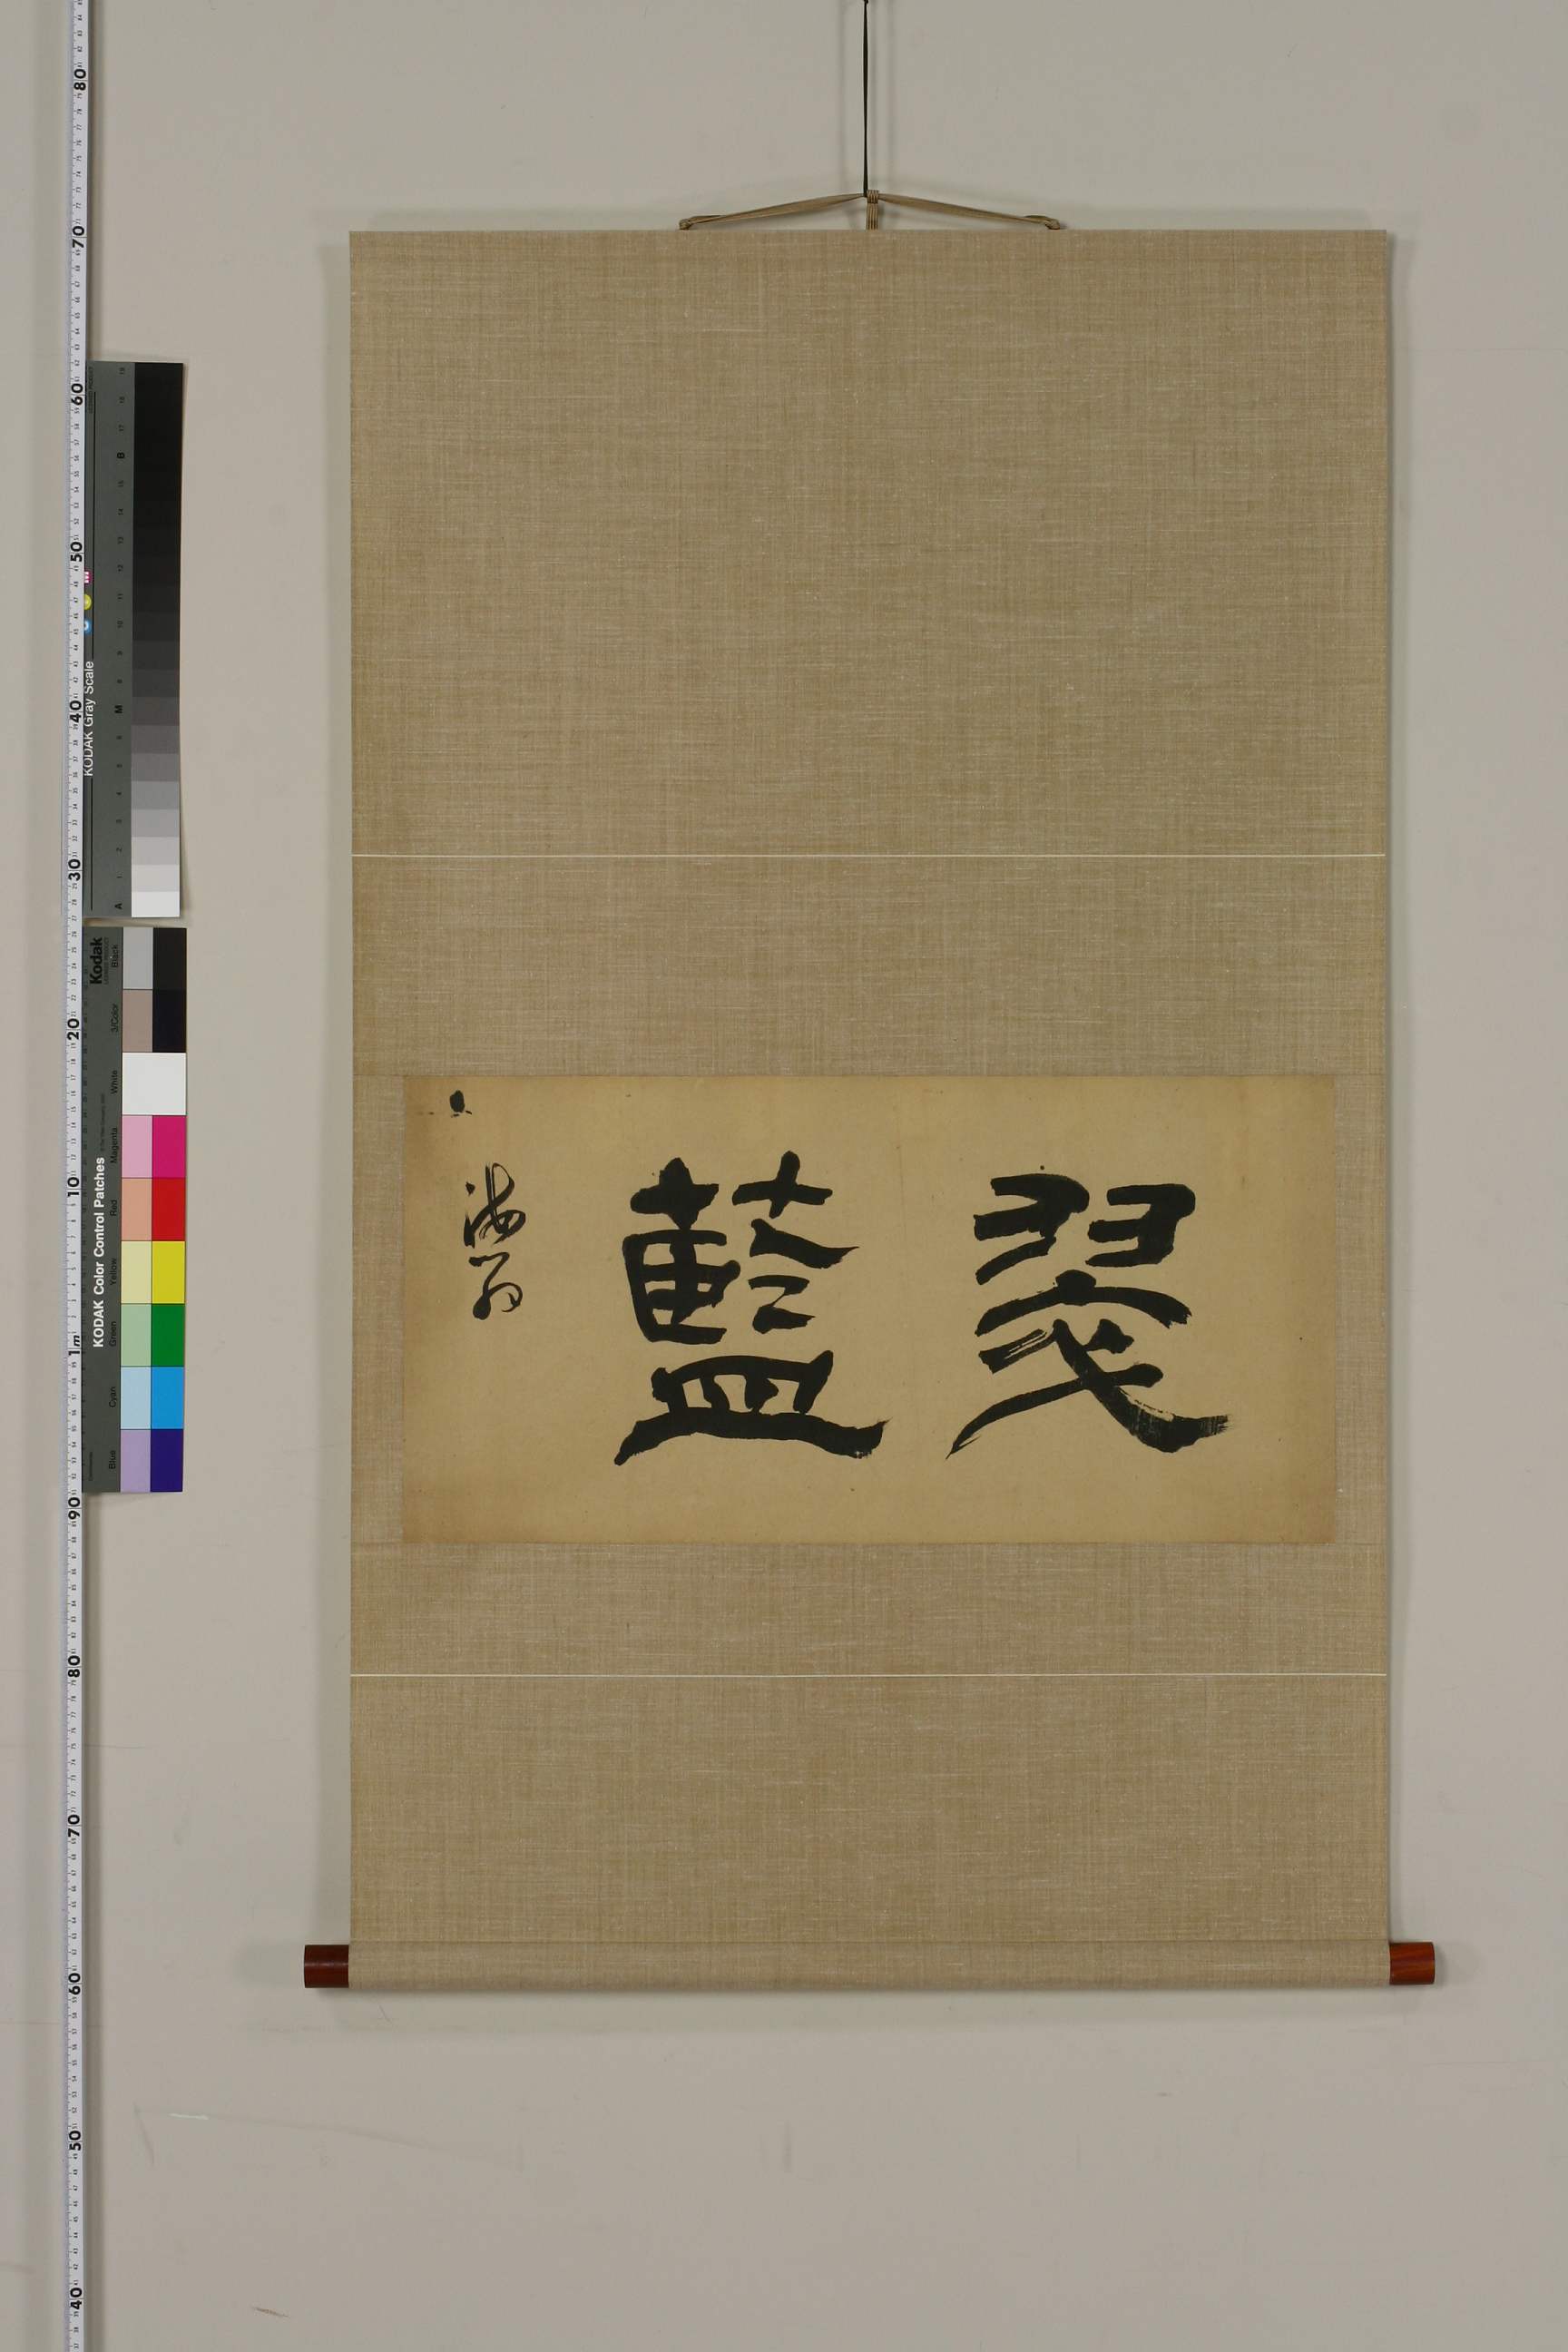 翠藍
海翁
80
70
60
50
40
30
20
10
1m
90
80
70
60
50
40
KODAK Gray Scale
A 1 2 3 4 5 6 M 8 9 10 11 12 13 14 15 B 17 18 19
Kodak
KODAK Color Control Patches
Blue
Cyan
Green
Yellow
Red
Magenta
White
3/Color
Black